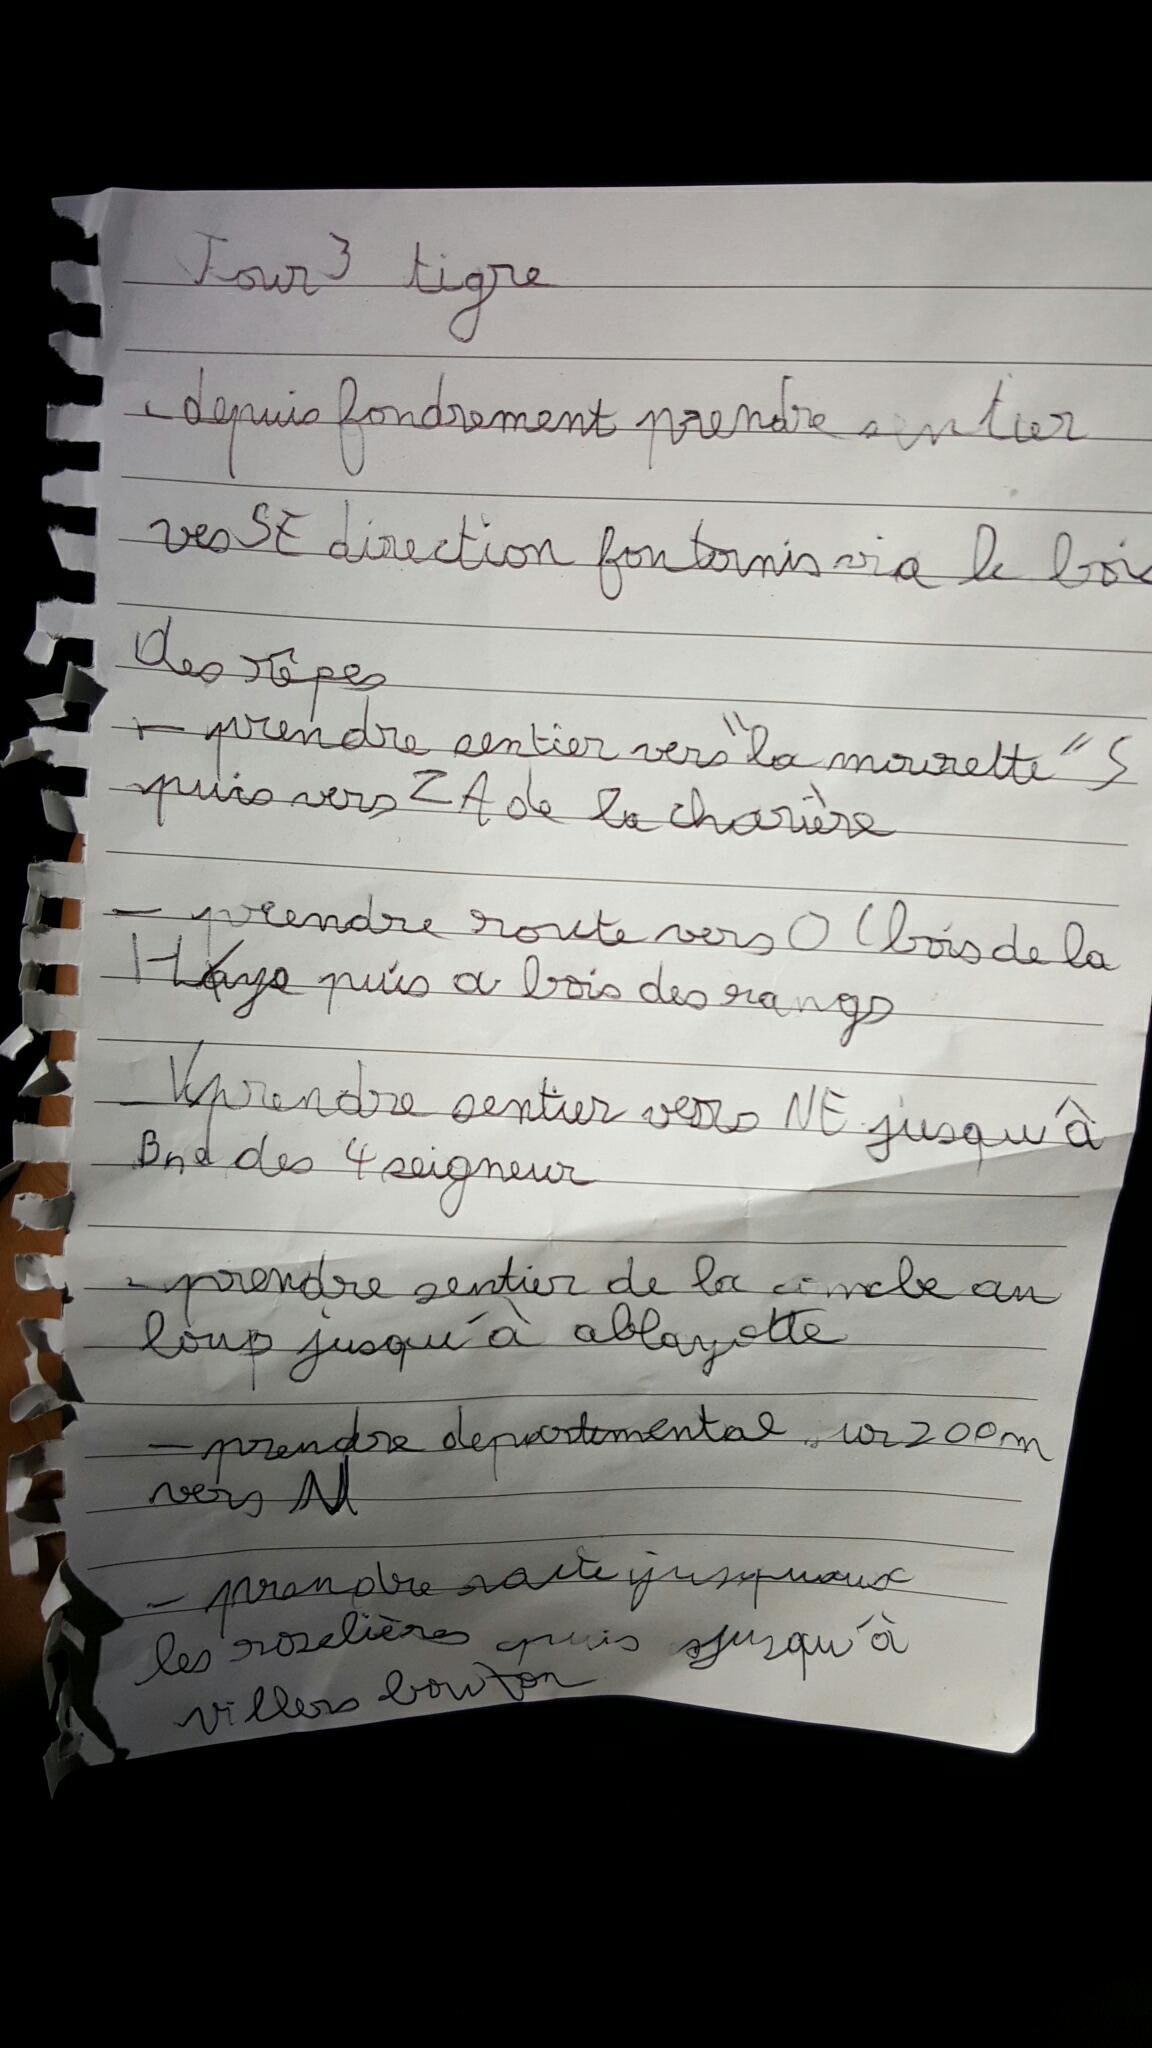 Jour 3 tigre
- depuis fondrement prendre sentier
ves SE direction fontornis via le bois
des rêpes
- prendre sentier vers "la mourette" S
puis vers ZA de la charière
- prendre route vers O (bois de la
Haye puis a bois des rangs
- prendre sentier vers NE jusqu'à
Bnd des 4 seigneur
- prendre sentier de la au
loup jusqu'à ablayotte
- prendre departemental sur 200m
vers N
- prendre jusquaux
les roselières puis jusqu'à
villers bouton